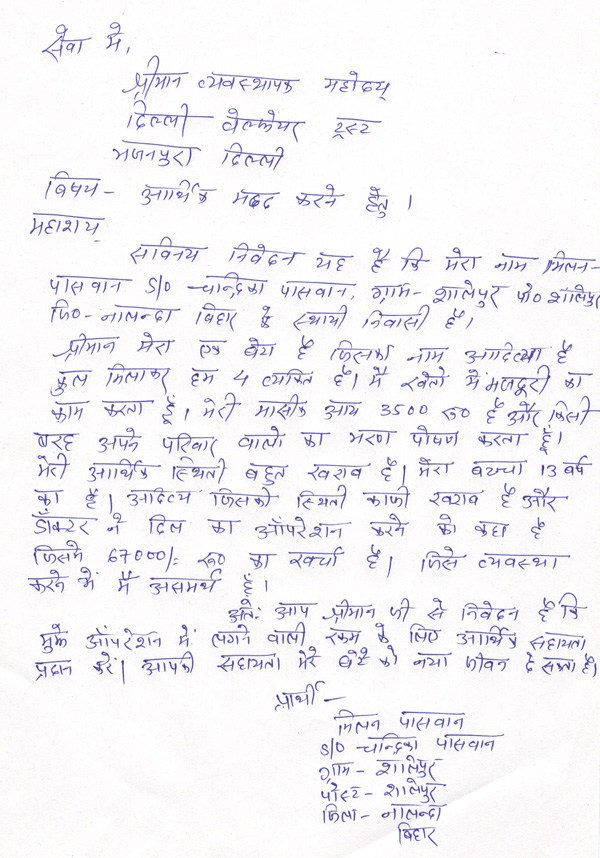 सेवा में,
श्रीमान व्यवस्थापक महोदय्
दिल्ली वेल्फेयर ट्रस्ट
भजनपुरा दिल्ली
बिषय - आार्थिक मदद करने हेतु ।
महाशय्
सविनय निवेदन यह है कि मेरा नाम मिलन-
पासवान S/O चान्द्रिका पासवान, ग्राम- शालेपुर पो० शालेपुर
जि०- नालन्दा बिहार के स्थायी निवासी है।
श्रीमान मेरा एक बेटा है जिसका नाम आदित्या है
कुल मिलाकर हम 4 व्यक्ति है। मै खेतो में मजदूरी का
काम करता हूं। मेरी मासीक आय 3500 रू० है और किसी
तरह अपने परिवार वालो का भरण पोषण करता हूँ।
मेरी आार्थिक स्थिती बहुत खराब है। मेरा बच्चा 13 वर्ष
का है। आदित्य जिसकी स्थिती काफी खराब है और
डॉक्टर ने दिल का ऑपरेशन करने को कहा है
जिसमे 67000/- रू० का खर्चा है। जिसे व्यवस्था
करने में मै असमर्थ हूँ।
अतः आप श्रीमान जी से निवेदन है कि
मुझे ऑपरेशन में लगने वाली रकम के लिए आार्थिक सहायता
प्रदान करें। आपकी सहायता मेरे बेटे को नया जीवन दे सकता है।
प्रार्थी -
मिलन पासवान
S/O चान्द्रिका पासवान
ग्राम- शालेपुर
पोस्ट- शालेपुर
जिला- नालन्दा
बिहार